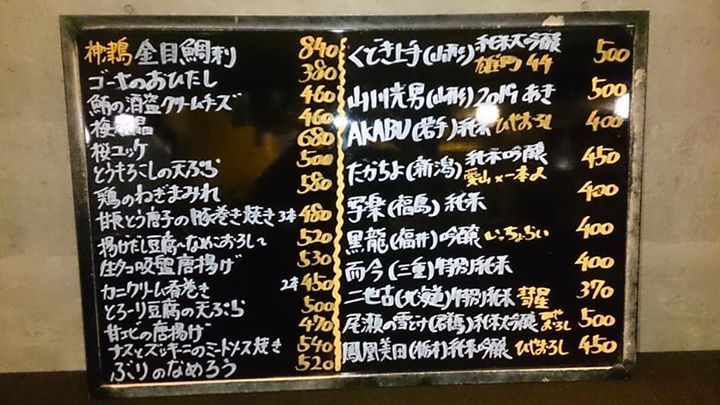 神津島 金目鯛刺 840
ゴーヤのおひたし 380
鮪の酒盗クリームチーズ 460
梅水晶 460
桜ユッケ 680
とうもろこしの天ぷら 500
鶏のねぎまみれ 580
甘長とう唐子の豚巻き焼き 3本 480
揚げだし豆腐〜なめこおろし〜 520
生タコ吸盤唐揚げ 530
カニクリーム春巻き 2本 450
とろーり豆腐の天ぷら 500
甘エビの唐揚げ 470
ナスとズッキーニのミートソース焼き 540
ぶりのなめろう 520
くどき上手(山形)純米大吟醸 雄町44 500
山川光男(山形)2019 あき 500
AKABU(岩手)純米 ひやおろし 400
たかちよ(新潟)純米吟醸 愛山×一本〆 450
写楽(福島)純米 400
黒龍(福井)吟醸 いっちょらい 400
而今(三重)特別純米 400
二世古(北海道)特別純米 彗星 370
尾瀬の雪どけ(群馬)純米大吟醸 ひやおろし 500
鳳凰美田(栃木)純米吟醸 ひやおろし 450